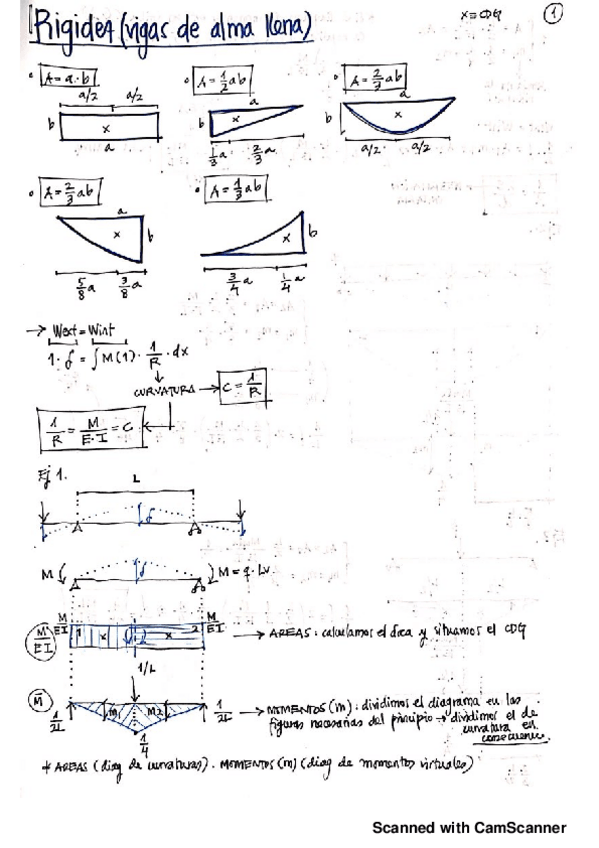 Rigidez (vigas de alma llena)
X ≡ CDG
1
A = a·b
A = 1/2 ab
A = 2/3 ab
a/2 a/2
b x a
a b x
1/3 a 2/3 a
a b x
a/2 a/2
A = 2/3 ab
A = 1/3 ab
a x b
5/8 a 3/8 a
x b
3/4 a 1/4 a
→ Wext = Wint
1·δ = ∫ M(1) · 1/R · dx
CURVATURA → C = 1/R
1/R = M/E·I = C
Ej 1.
L
δ
M δ M = q·Lv.
M/EI M/EI 1 x x 2 M/EI → AREAS: calculamos el área y situamos el CDG
1/L
M̄ 1/2L m1 m2 1/2L → MOMENTOS (m): dividimos el diagrama en las
figuras necesarias del principio → dividimos el de
curvatura en
consecuencia.
1/4
* AREAS (diag de curvaturas). MOMENTOS (m) (diag de momentos virtuales)
Scanned with CamScanner